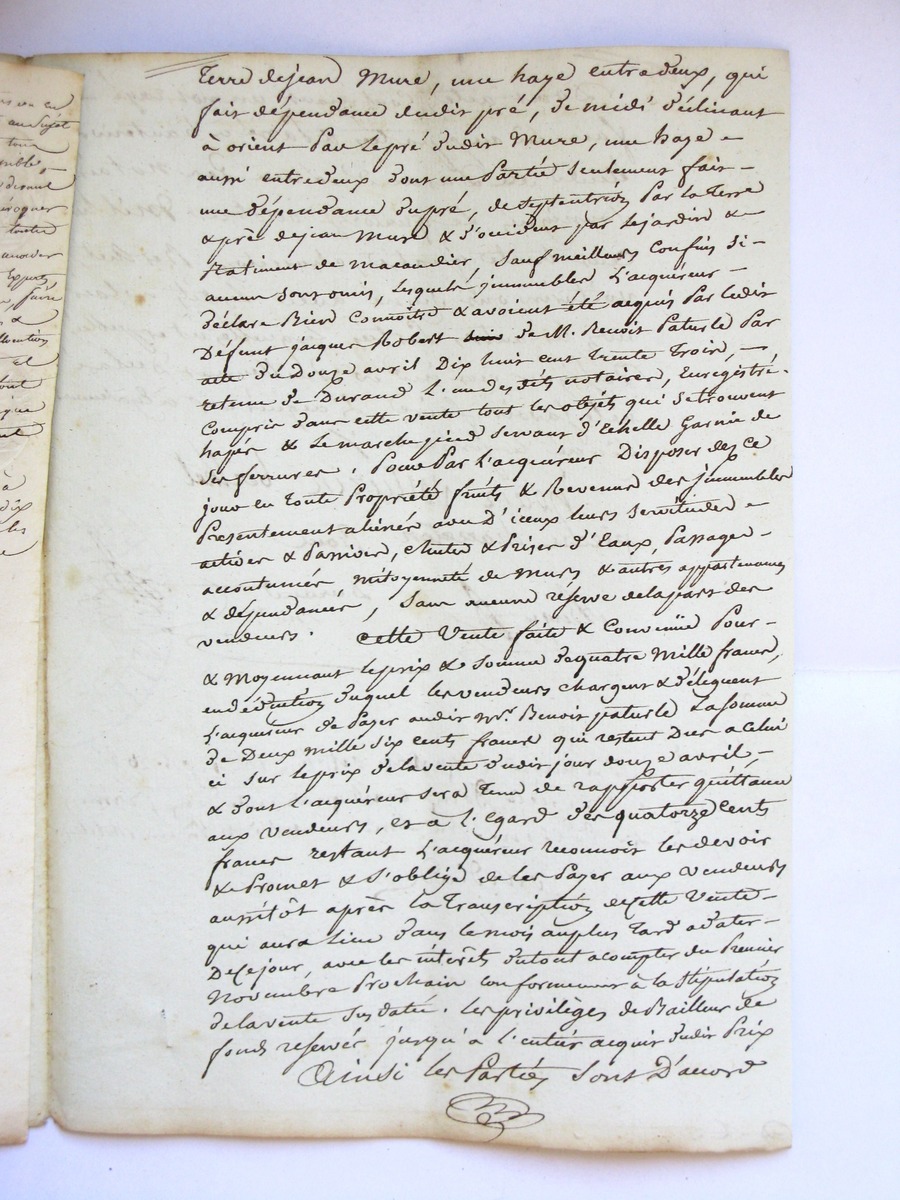 Terre de jean Mure, une haye entredeux, qui
fait dépendance dudit pré, de midi déclinant
à orient Par le pré dudit Mure, une haye
aussi entredeux dont une Partie seulement fait
une dépendance du pré, de septentrion Par la Terre
& pré de jean Mure & d'occident par le jardin &
Batiment de macaudier, sauf meilleurs confins si
aucun sont omis, Lesquels jmmeubles L'acquéreur
déclare Bien Connoitre & avoient été acquis Par ledit
Défunt jacques Robert de M. Benoit Paturle Par
acte du Douze avril Dix huit cent trente Trois,
retenu de Durand L'un des dits notaires, Enregistré.
Compris dans cette vente tout les objets qui se trouvent
& Le marche pied servant d'Echelle Garnie de
ses ferrures. Pour Par L'acquéreur Disposer dez ce
jour en toute Propriété fruits & Revenus des jmmeubles
Présentement aliénés avec D'iceux leurs servitudes
actives & Passives, chutes & Prises d'Eaux, Passages
accoutumés, mitoyenneté de Murs & autres appartenances
& dépendances, sans aucune réserve de la part des
vendeurs. Cette Vente faite & Convenüe Pour
& Moyennant le prix & somme de quatre Mille francs,
en déduction duquel les vendeurs chargent & délèguent
L'acquéreur de Payer audit Mr. Benoit paturle La somme
de Deux mille six cents francs qui restent Dus a Celui
ci sur le prix de la vente dudit jour douze avril,
& dont l'acquéreur sera Tenu de rapporter quittance
aux vendeurs, et a L'égard des quatorze Cents
francs restant L'acquéreur reconnoit les devoir
& Promet & S'oblige de les Payer aux vendeurs
aussitôt après la Transcription de cette Vente
qui aura Lieu dans le mois au plus Tard a dater
De ce jour, avec les intérêts du tout a compter du Premier
Novembre Prochain conformement à la Stipulation
de la vente sus datée. Les privilèges de Bailleur de
fonds reservés jusqu'à L'entier acquit dudit Prix
Ainsi les Parties sont D'accord